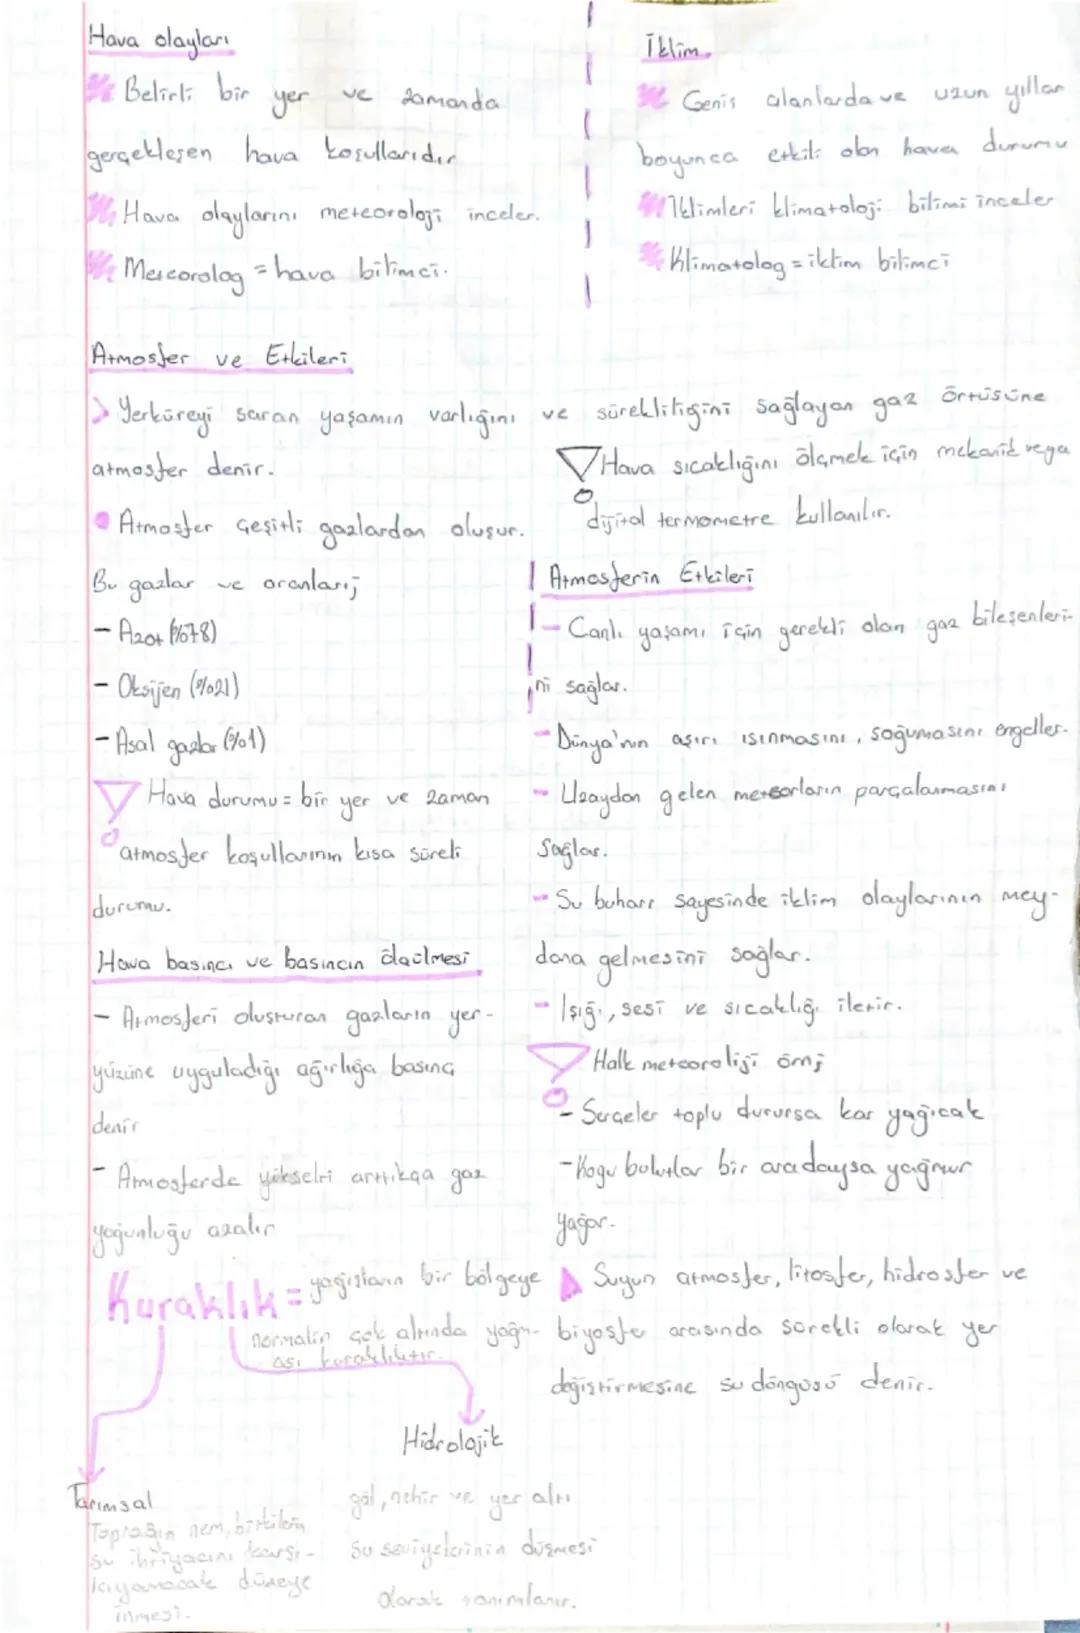 Hava olayları
Belirli bir yer ve zamanda
gerçekleşen hava koşullarıdır
Hava olaylarını meteoroloji inceler.
Meteorolog = hava bilimci.
İklim
Geniş alanlarda ve uzun yıllar
boyunca etkili olan hava durumu
İklimleri klimatoloji bilimi inceler
Klimatolog = iklim bilimci
Atmosfer ve Etkileri
> Yerküreyi saran yaşamın varlığını ve sürekliliğini sağlayan gaz örtüsüne
atmosfer denir.
Hava sıcaklığını ölçmek için mekanik veya
dijital termometre kullanılır.
Atmosfer çeşitli gazlardan oluşur.
Bu gazlar ve oranları;
- Azot (%78)
- Oksijen (%21)
- Asal gazlar (%1)
Hava durumu = bir yer ve zaman
atmosfer koşullarının kısa süreli
durumu.
Hava basıncı ve basıncın ölçülmesi
- Atmosferi oluşturan gazların yer-
yüzüne uyguladığı ağırlığa basınç
denir
- Atmosferde yükselti arttıkça gaz
yoğunluğu azalır
Atmosferin Etkileri
- Canlı yaşamı için gerekli olan gaz bileşenleri-
ni sağlar.
- Dünya'nın aşırı ısınmasını, soğumasını engeller.
- Uzaydan gelen meteorların parçalanmasını
sağlar.
- Su buharı sayesinde iklim olaylarının mey-
dana gelmesini sağlar.
- Işığı, sesi ve sıcaklığı iletir.
Halk meteoroliji örn;
- Serçeler toplu durursa kar yağıcak
- Koyu bulutlar bir aradaysa yağmur
yağar.
Suyun atmosfer, litosfer, hidrosfer ve
biyosfe arasında sürekli olarak yer
değiştirmesine su döngüsü denir.
Kuraklık = yağışların bir bölgeye
normalin çok altında yağm-
ası kuraklıktır.
Tarımsal
Toprağın nem, bitkilerin
su ihtiyacını karşı-
layamacak düzeye
inmesi.
Hidrolojik
göl, nehir ve yer altı
su seviyelerinin düşmesi
olarak tanımlanır.